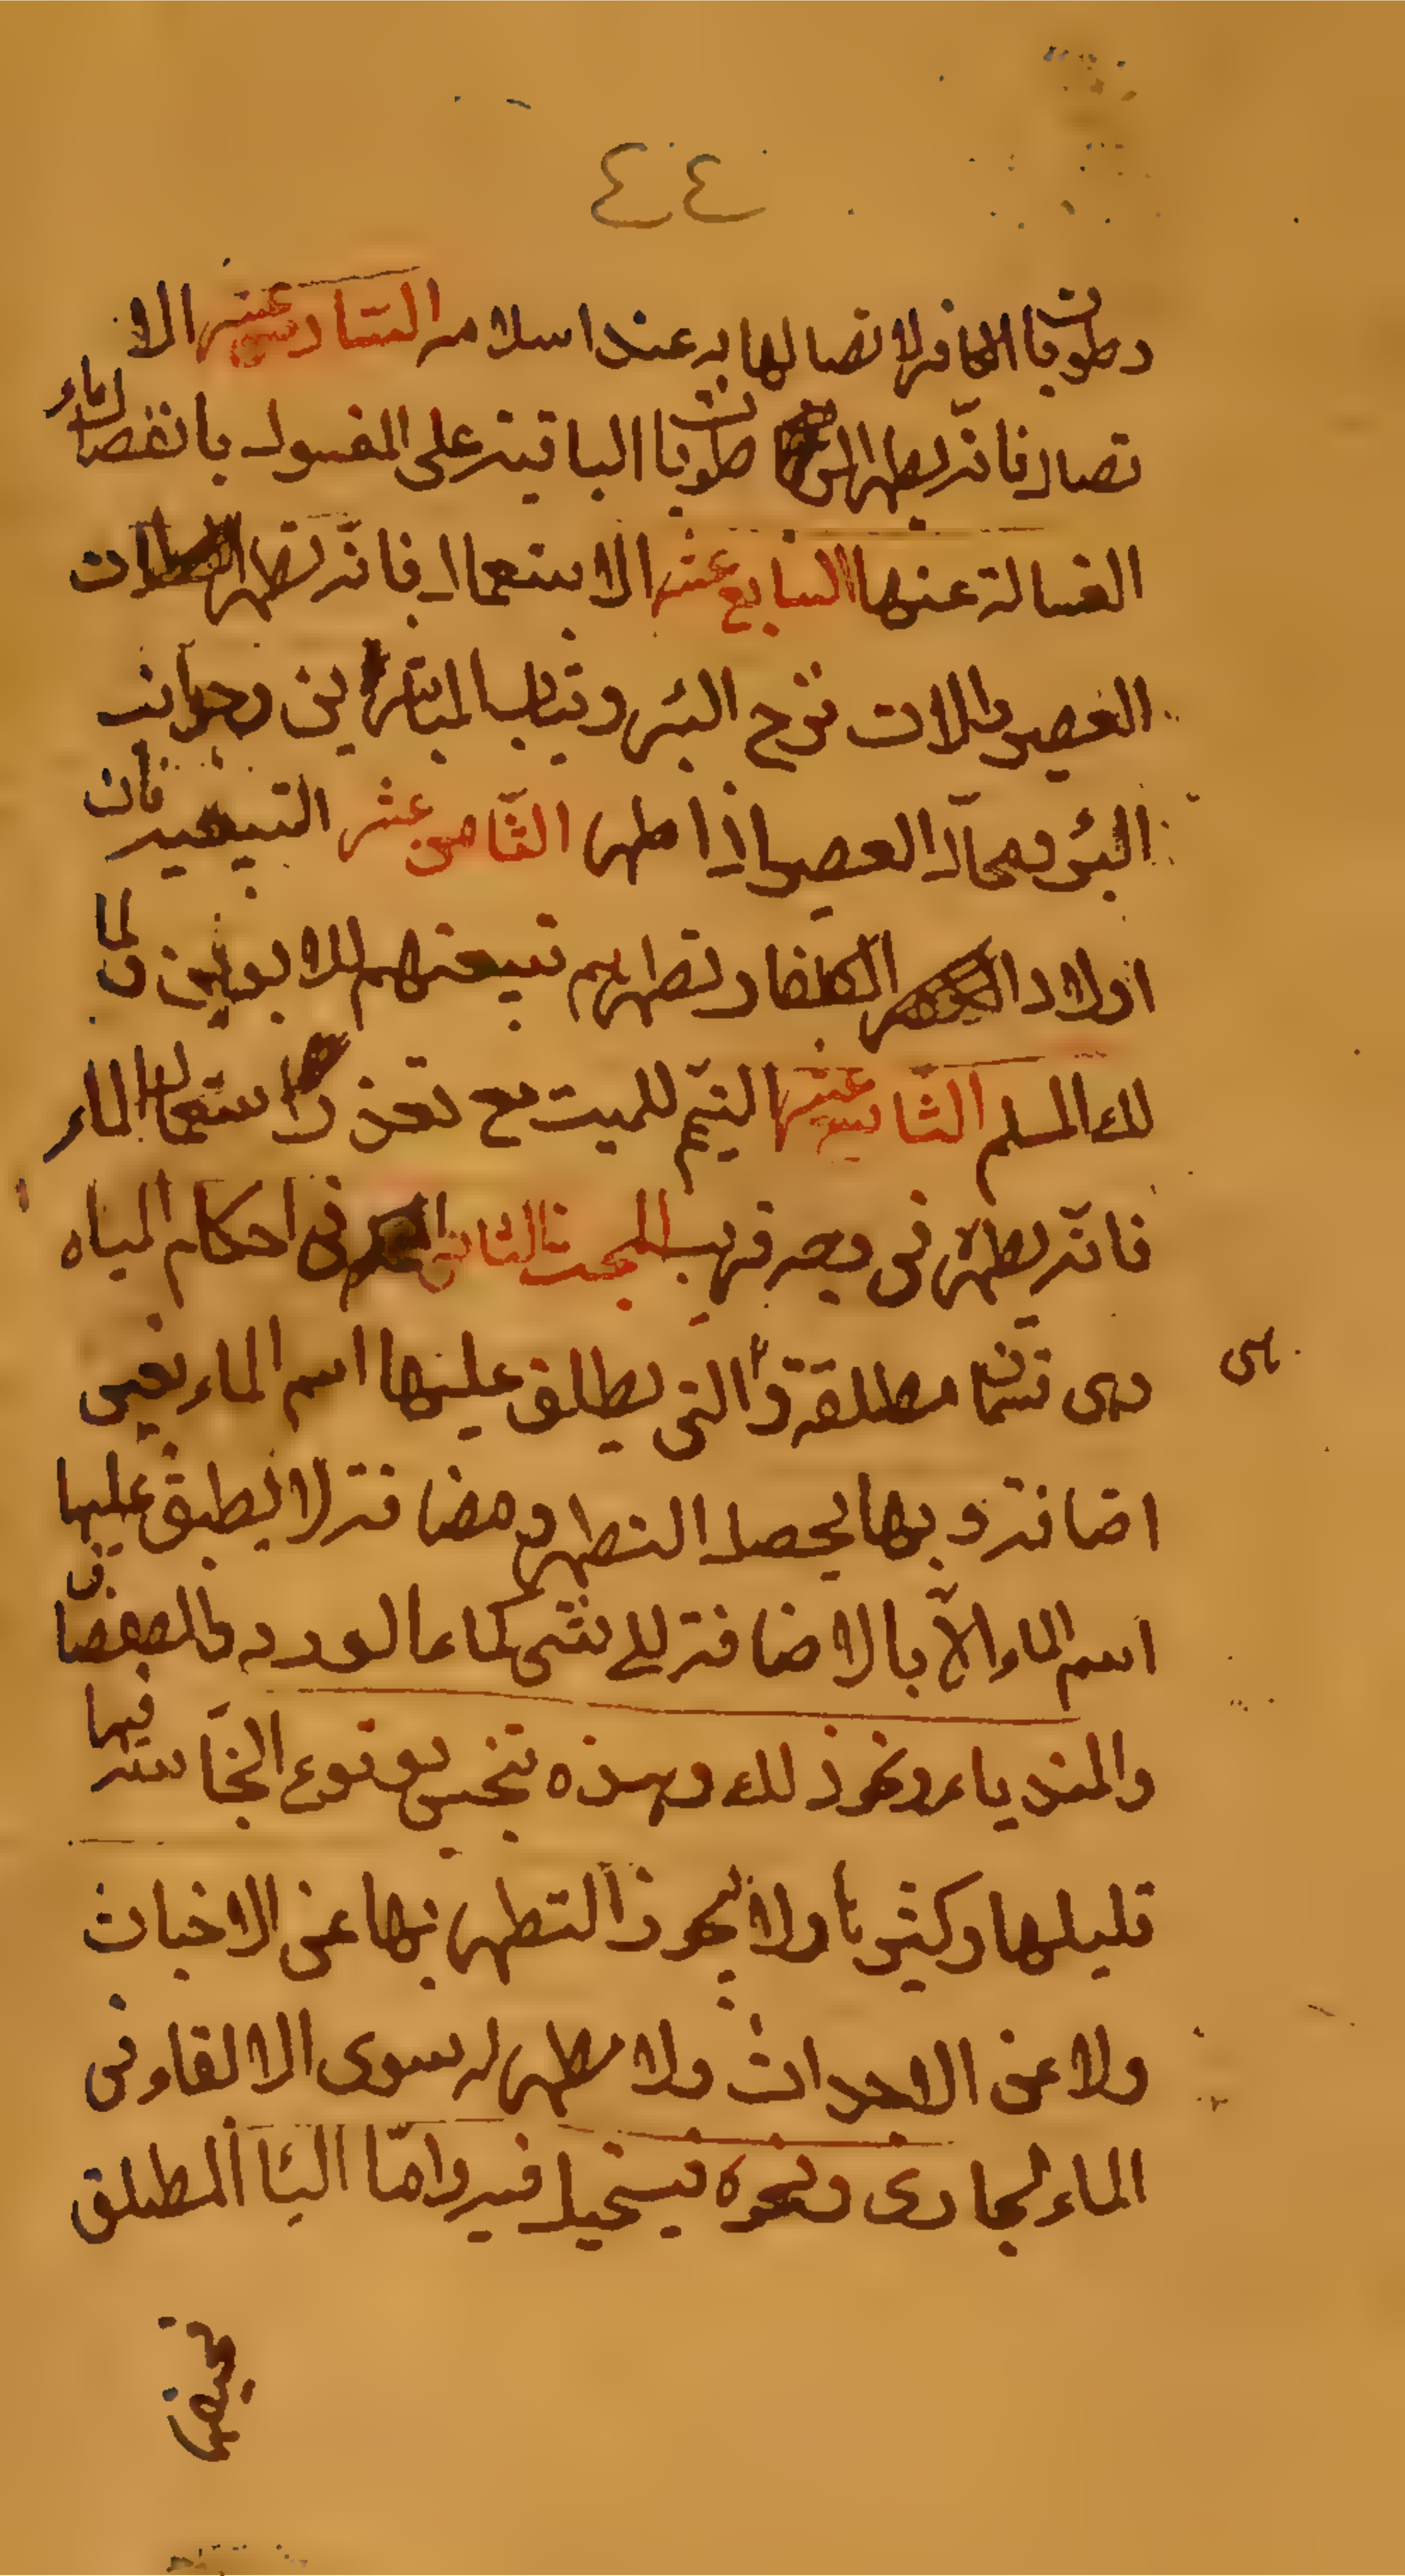 ٤٤
رطوبات الكافر لاتصالها به عند اسلامه السادس عشر الا
تصال فانه يطهر الرطوبات الباقية على المغسول بانفصال ماء
الغسالة عنها السابع عشر الاستعمال فانه يطهر الات
العصير والات نزح البئر وثياب المباشرين وجوانب
البئر ومحال العصير اذا طهر الثامن عشر التبعية فان
اولاد الكفار تطهرهم تبيعتهم للابوين ولما
لك المسلم التاسع عشر التيمم للميت مع تعذر استعمال الماء
فانه يطهره في وجه قريب المبحث الثاني في احكام المياه
وهى قسمان مطلقة و التي يطلق عليها اسم الماء بغير
اضافة وبها يحصل التطهر ومضافة لا يطبق عليها
اسم الماء الا بالاضافة الى شى كماء الورد والصفصاف
والهندباء ونحو ذلك وهذه تنجس بوقوع النجاسة فيها
قليلها وكثيرها ولا يجوز التطهر بها عن الاخباث
ولا عن الاحداث ولا مطهر له سوى الالقاء فى
الماء الجارى ونحوه فيستحيل فيه واما الماء المطلق